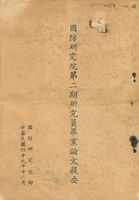 國防研究院第二期研究員畢業論文提要
國防研究院印
中華民國四十九年十二月